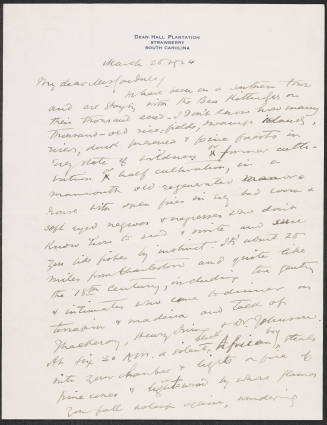 DEAN HALL PLANTATION
STRAWBERRY
SOUTH CAROLINA
March 28 1924
My dear Mrs Gardner/
I have been on a southern tour
and are staying with the Ben Kittredges on
their thousand and I don't know how many
thousand-old rice fields, swamps islands,
rivers, dead and pine forests in
every state of wildness former culti-
vation & half cultivation, in a
mammoth old regenerated manors
house with open fires in every bed room &
soft eyed negroes & negresses who don't
know how to read & write and serve
you like fishes by instinct. It's about 25
miles from Charleston and quite like
the 18th Century, including the gentry
& intimates who come to dinner on
terrapin & madeira and talk of
Thackeray, Henry Irving & Dr. Johnson.
At six 30 A.M. a silent, black African boy, steals
into your chamber & lights a fire of
pine cones & lightwood by whose flames
you fall asleep again, wondering